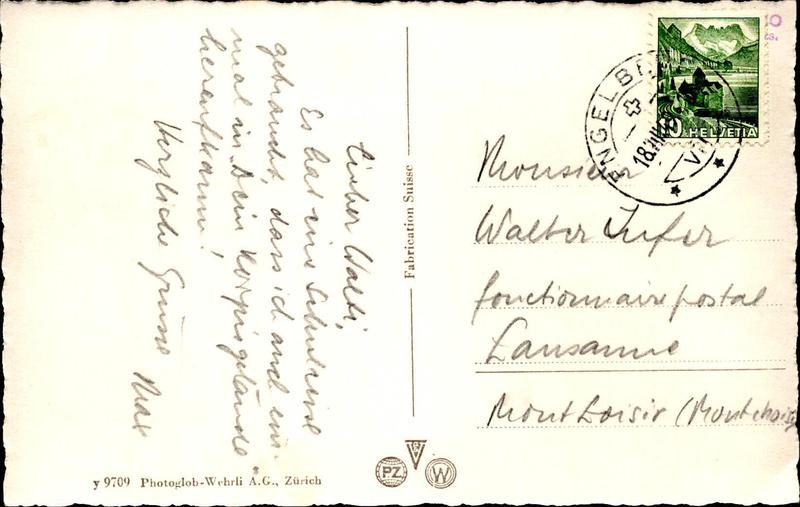 Lieber Walti,
Es hat eine Schulreise
gebraucht, dass ich auch ein-
mal in "Dein Korpsgelände
heraufkam!
Herzliche Grüsse Max
Fabrication Suisse
y 9709 Photoglob-Wehrli A.G., Zürich
PZ
W
ENGELBERG
18.
VIII
10 HELVETIA
Monsieur
Walter Infer
fonctionnaire postal
Lausanne
Mont Loisir (Montchoisi